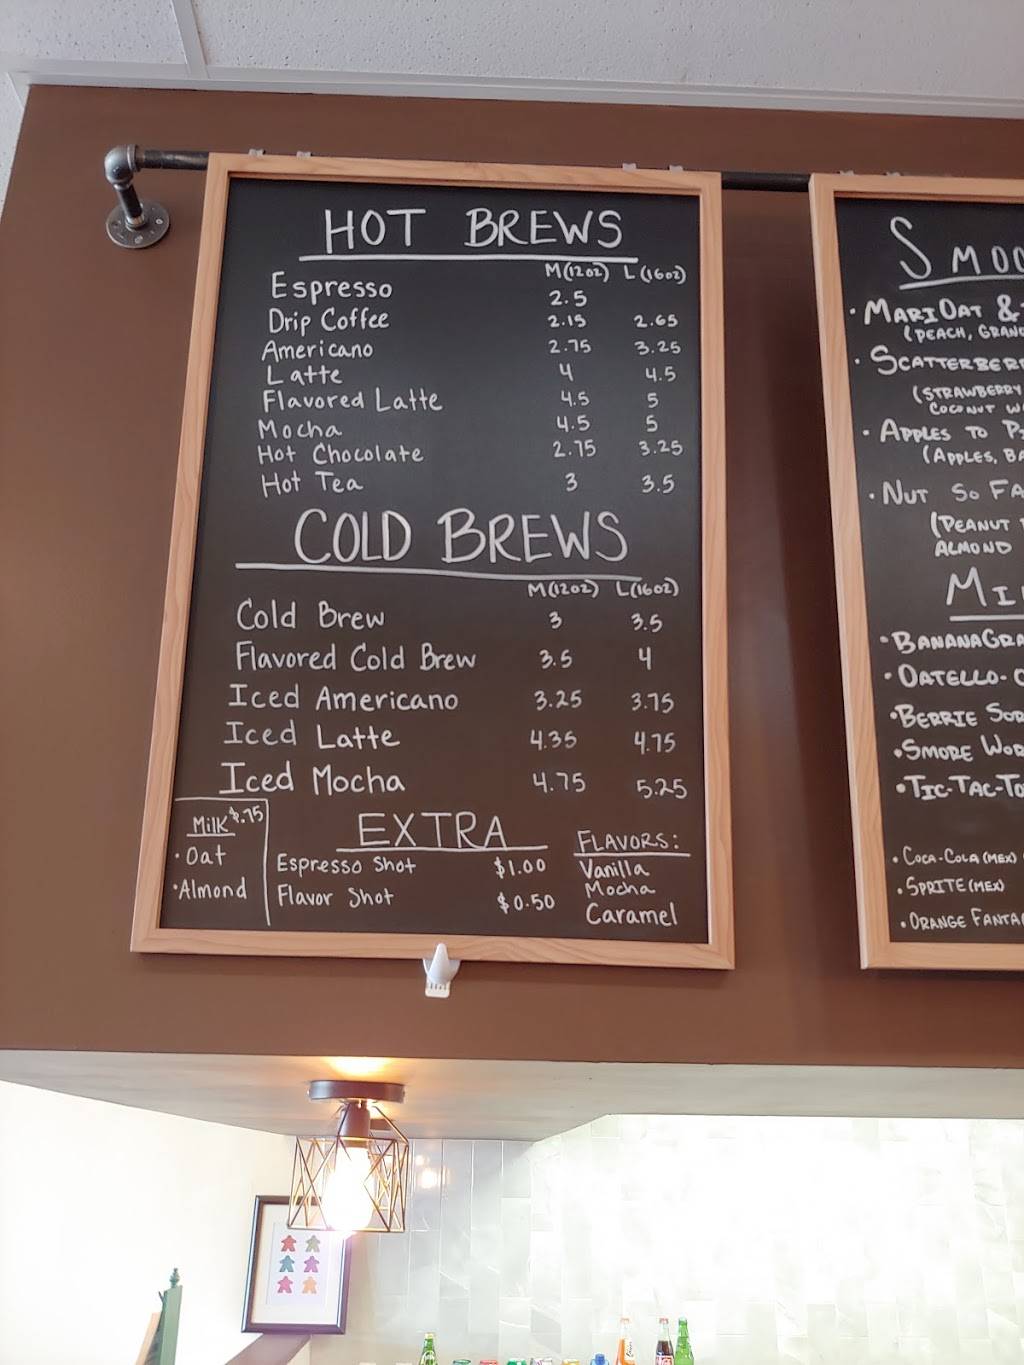 HOT BREWS
M(12oz) L(16oz)
Espresso 2.5
Drip Coffee 2.15 2.65
Americano 2.75 3.25
Latte 4 4.5
Flavored Latte 4.5 5
Mocha 4.5 5
Hot Chocolate 2.75 3.25
Hot Tea 3 3.5
COLD BREWS
M(12oz) L(16oz)
Cold Brew 3 3.5
Flavored Cold Brew 3.5 4
Iced Americano 3.25 3.75
Iced Latte 4.35 4.75
Iced Mocha 4.75 5.25
Milk $.75
• Oat
• Almond
EXTRA
Espresso Shot $1.00
Flavor Shot $0.50
FLAVORS:
Vanilla
Mocha
Caramel
• MARIOAT &
(PEACH,
•
(STRAWBERRY
COCONUT
• APPLES TO
(APPLES,
• NUT SO
(PEANUT
ALMOND
•
• OATELLO-
• BERRIE
• SMORE
• TIC-TAC-
• COCA-COLA (MEX)
• SPRITE (MEX)
• ORANGE FANTA